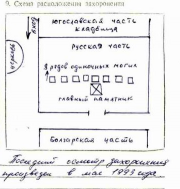 9. Схема расположения захоронения
вход
Югославская часть
кладбища
церковь
Русская часть
8 рядов одиночных могил
главный памятник
Болгарская часть
Последний осмотр захоронения
произведен в мае 1993 года